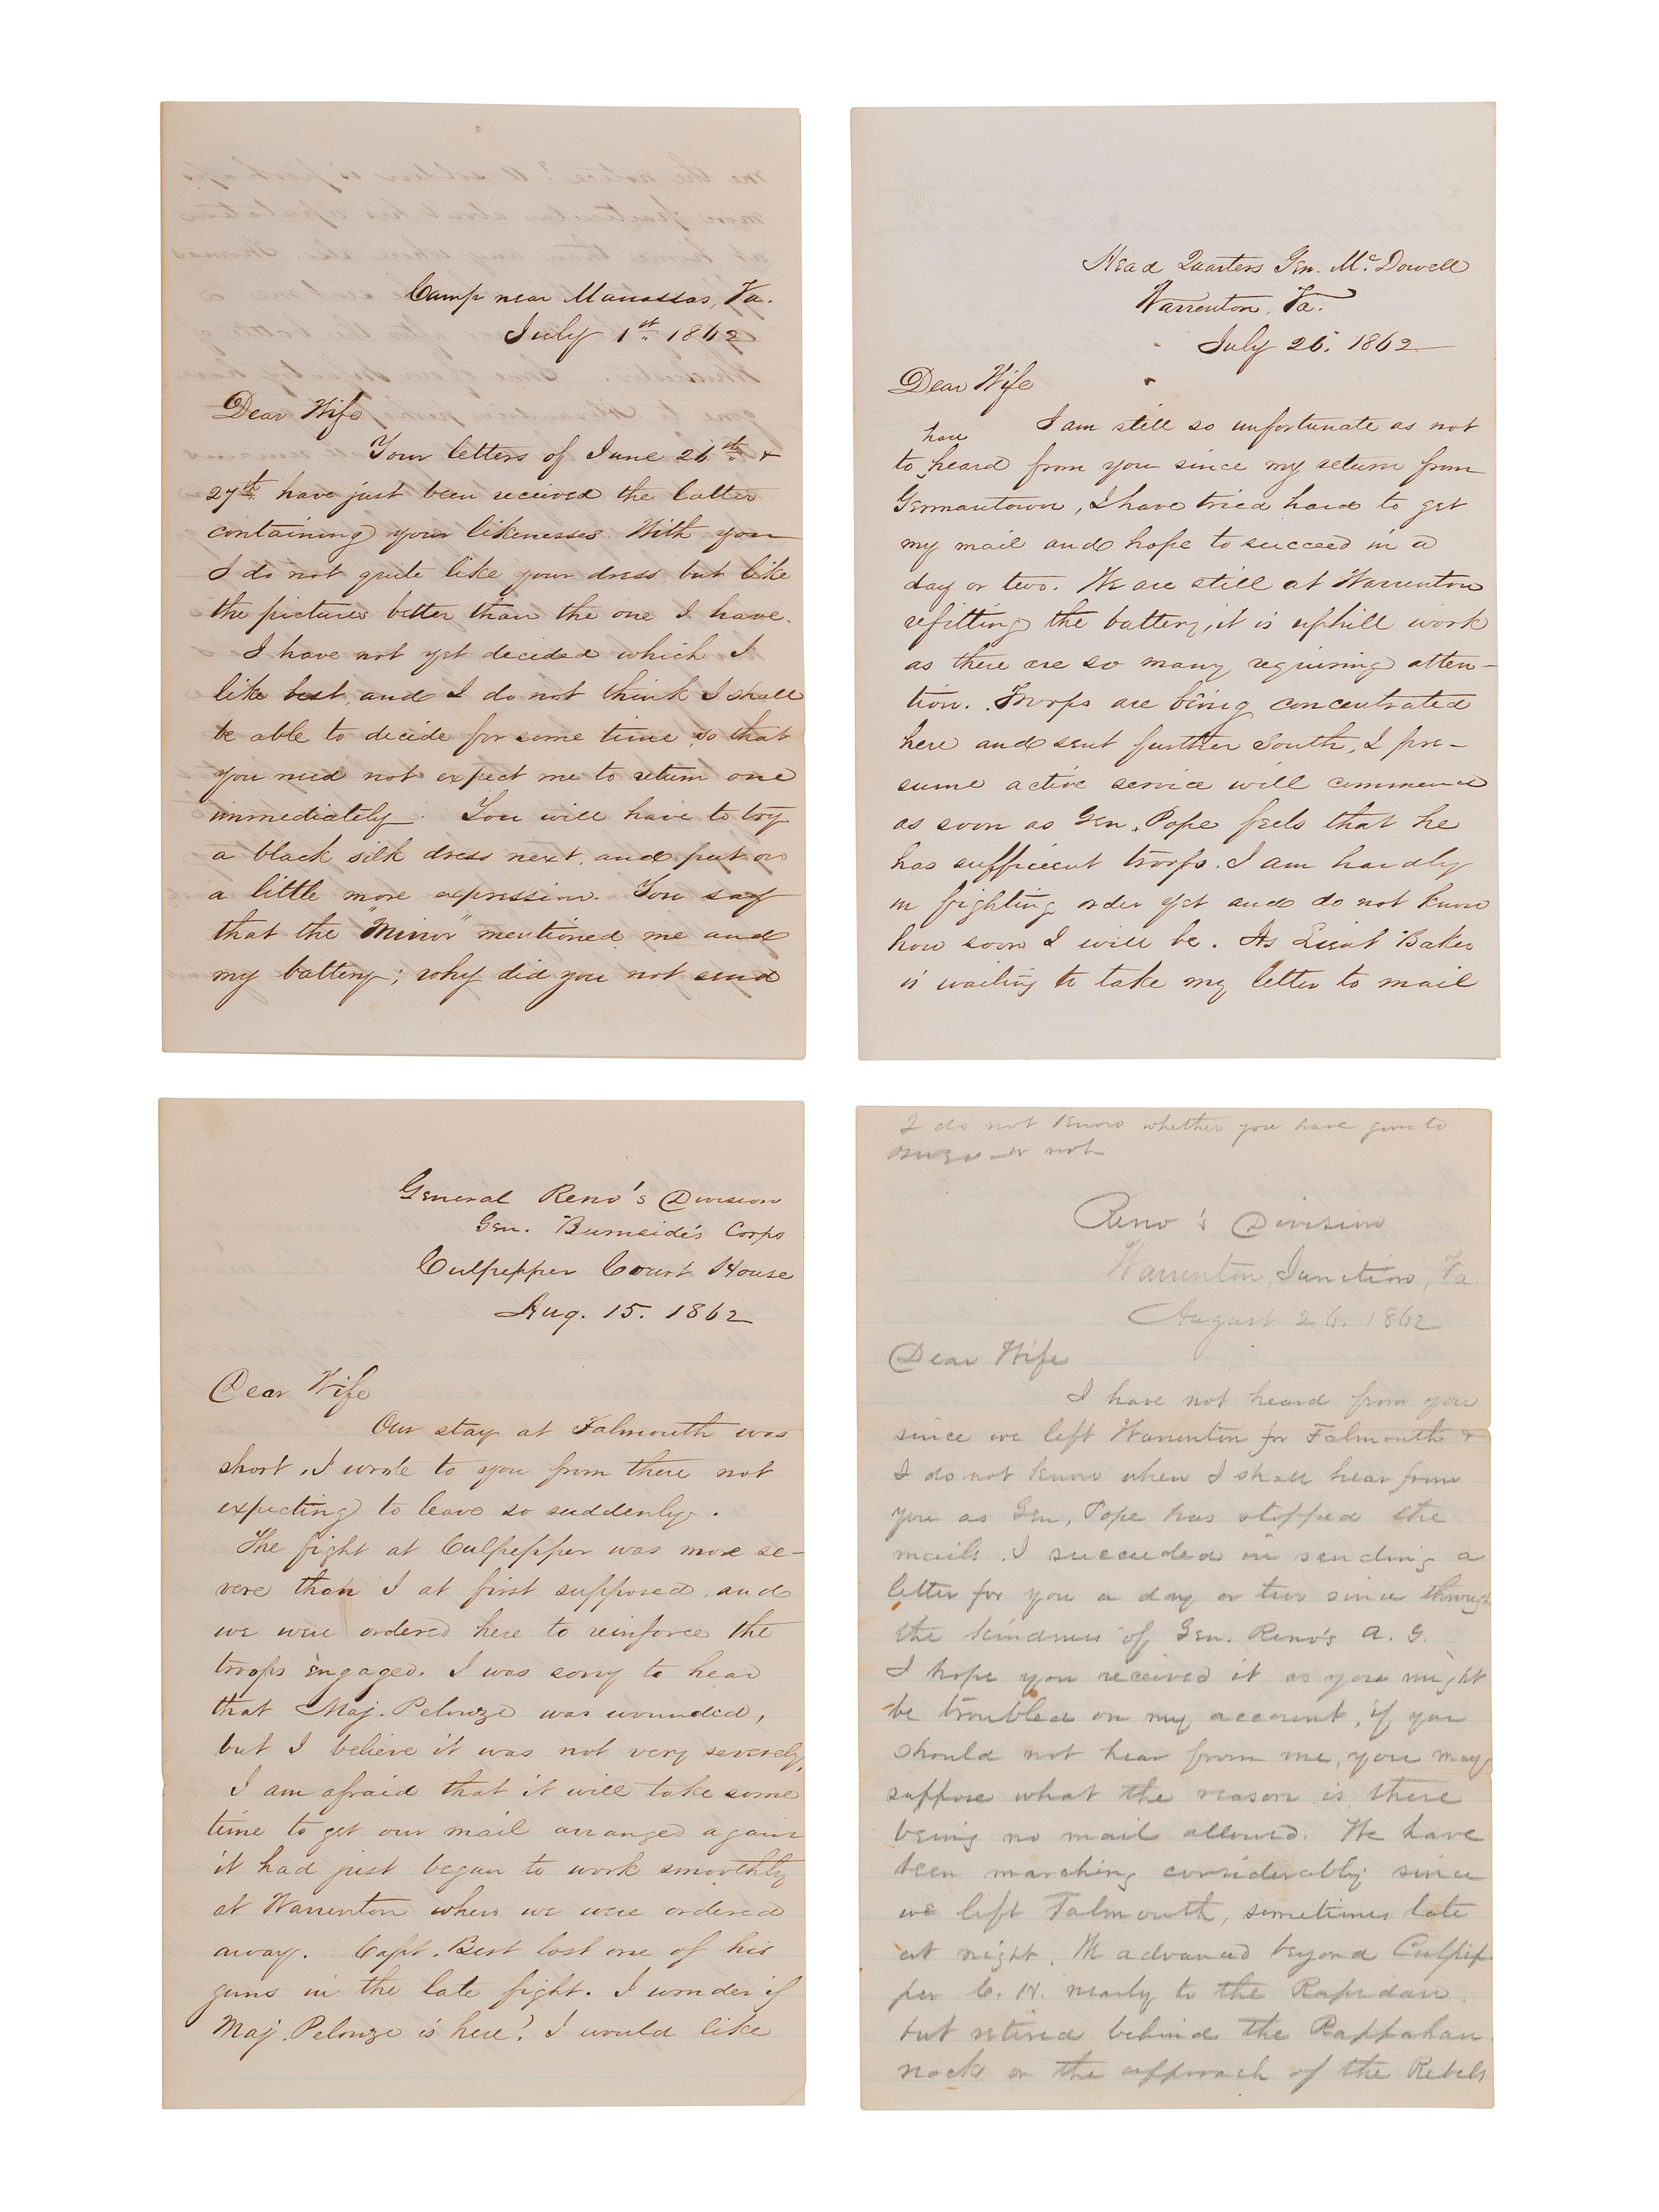 Camp near Manassas, Va.
July 1st 1862
Dear Wife
Your letters of June 26th &
27th have just been received the latter
containing your likenesses. With you
I do not quite like your dress, but like
the pictures better than the one I have.
I have not yet decided which I
like best, and I do not think I shall
be able to decide for some time, so that
you need not expect me to return one
immediately. You will have to try
a black silk dress next, and put on
a little more expression. You say
that the "Mirror" mentioned me and
my battery; why did you not send
Head Quarters Gen. McDowell
Warrenton, Va.
July 26. 1862
Dear Wife
I am still so unfortunate as not
to have heard from you since my return from
Germantown, I have tried hard to get
my mail and hope to succeed in a
day or two. We are still at Warrenton
refitting the battery, it is uphill work
as there are so many requiring atten-
tion. Troops are being concentrated
here and sent further South, I pre-
sume active service will commence
as soon as Gen. Pope feels that he
has sufficient troops. I am hardly
in fighting order yet and do not know
how soon I will be. As Lieut Baker
is waiting to take my letter to mail
General Reno's Division
Gen. Burnside's Corps
Culpepper Court House
Aug. 15. 1862
Dear Wife
Our stay at Falmouth was
short, I wrote to you from there not
expecting to leave so suddenly.
The fight at Culpepper was more se-
vere than I at first supposed, and
we were ordered here to reinforce the
troops engaged. I was sorry to hear
that Maj. Pelouze was wounded,
but I believe it was not very severely,
I am afraid that it will take some
time to get our mail arranged again
it had just begun to work smoothly
at Warrenton when we were ordered
away. Capt. Best lost one of his
guns in the late fight. I wonder if
Maj. Pelouze is here? I would like
I do not know whether you have gone to
or not
Reno's Division
Warrenton Junction, Va
August 26. 1862
Dear Wife
I have not heard from you
since we left Warrenton for Falmouth &
I do not know when I shall hear from
you as Gen. Pope has stopped the
mails. I succeeded in sending a
letter for you a day or two since through
the kindness of Gen. Reno's A. G.
I hope you received it as you might
be troubled on my account, if you
should not hear from me, you may
suppose what the reason is there
being no mail allowed. We have
been marching considerably since
we left Falmouth, sometimes late
at night. We advanced beyond Culpep
per C. H. nearly to the Rapidan
but retired behind the Rappahan
nock on the approach of the Rebels